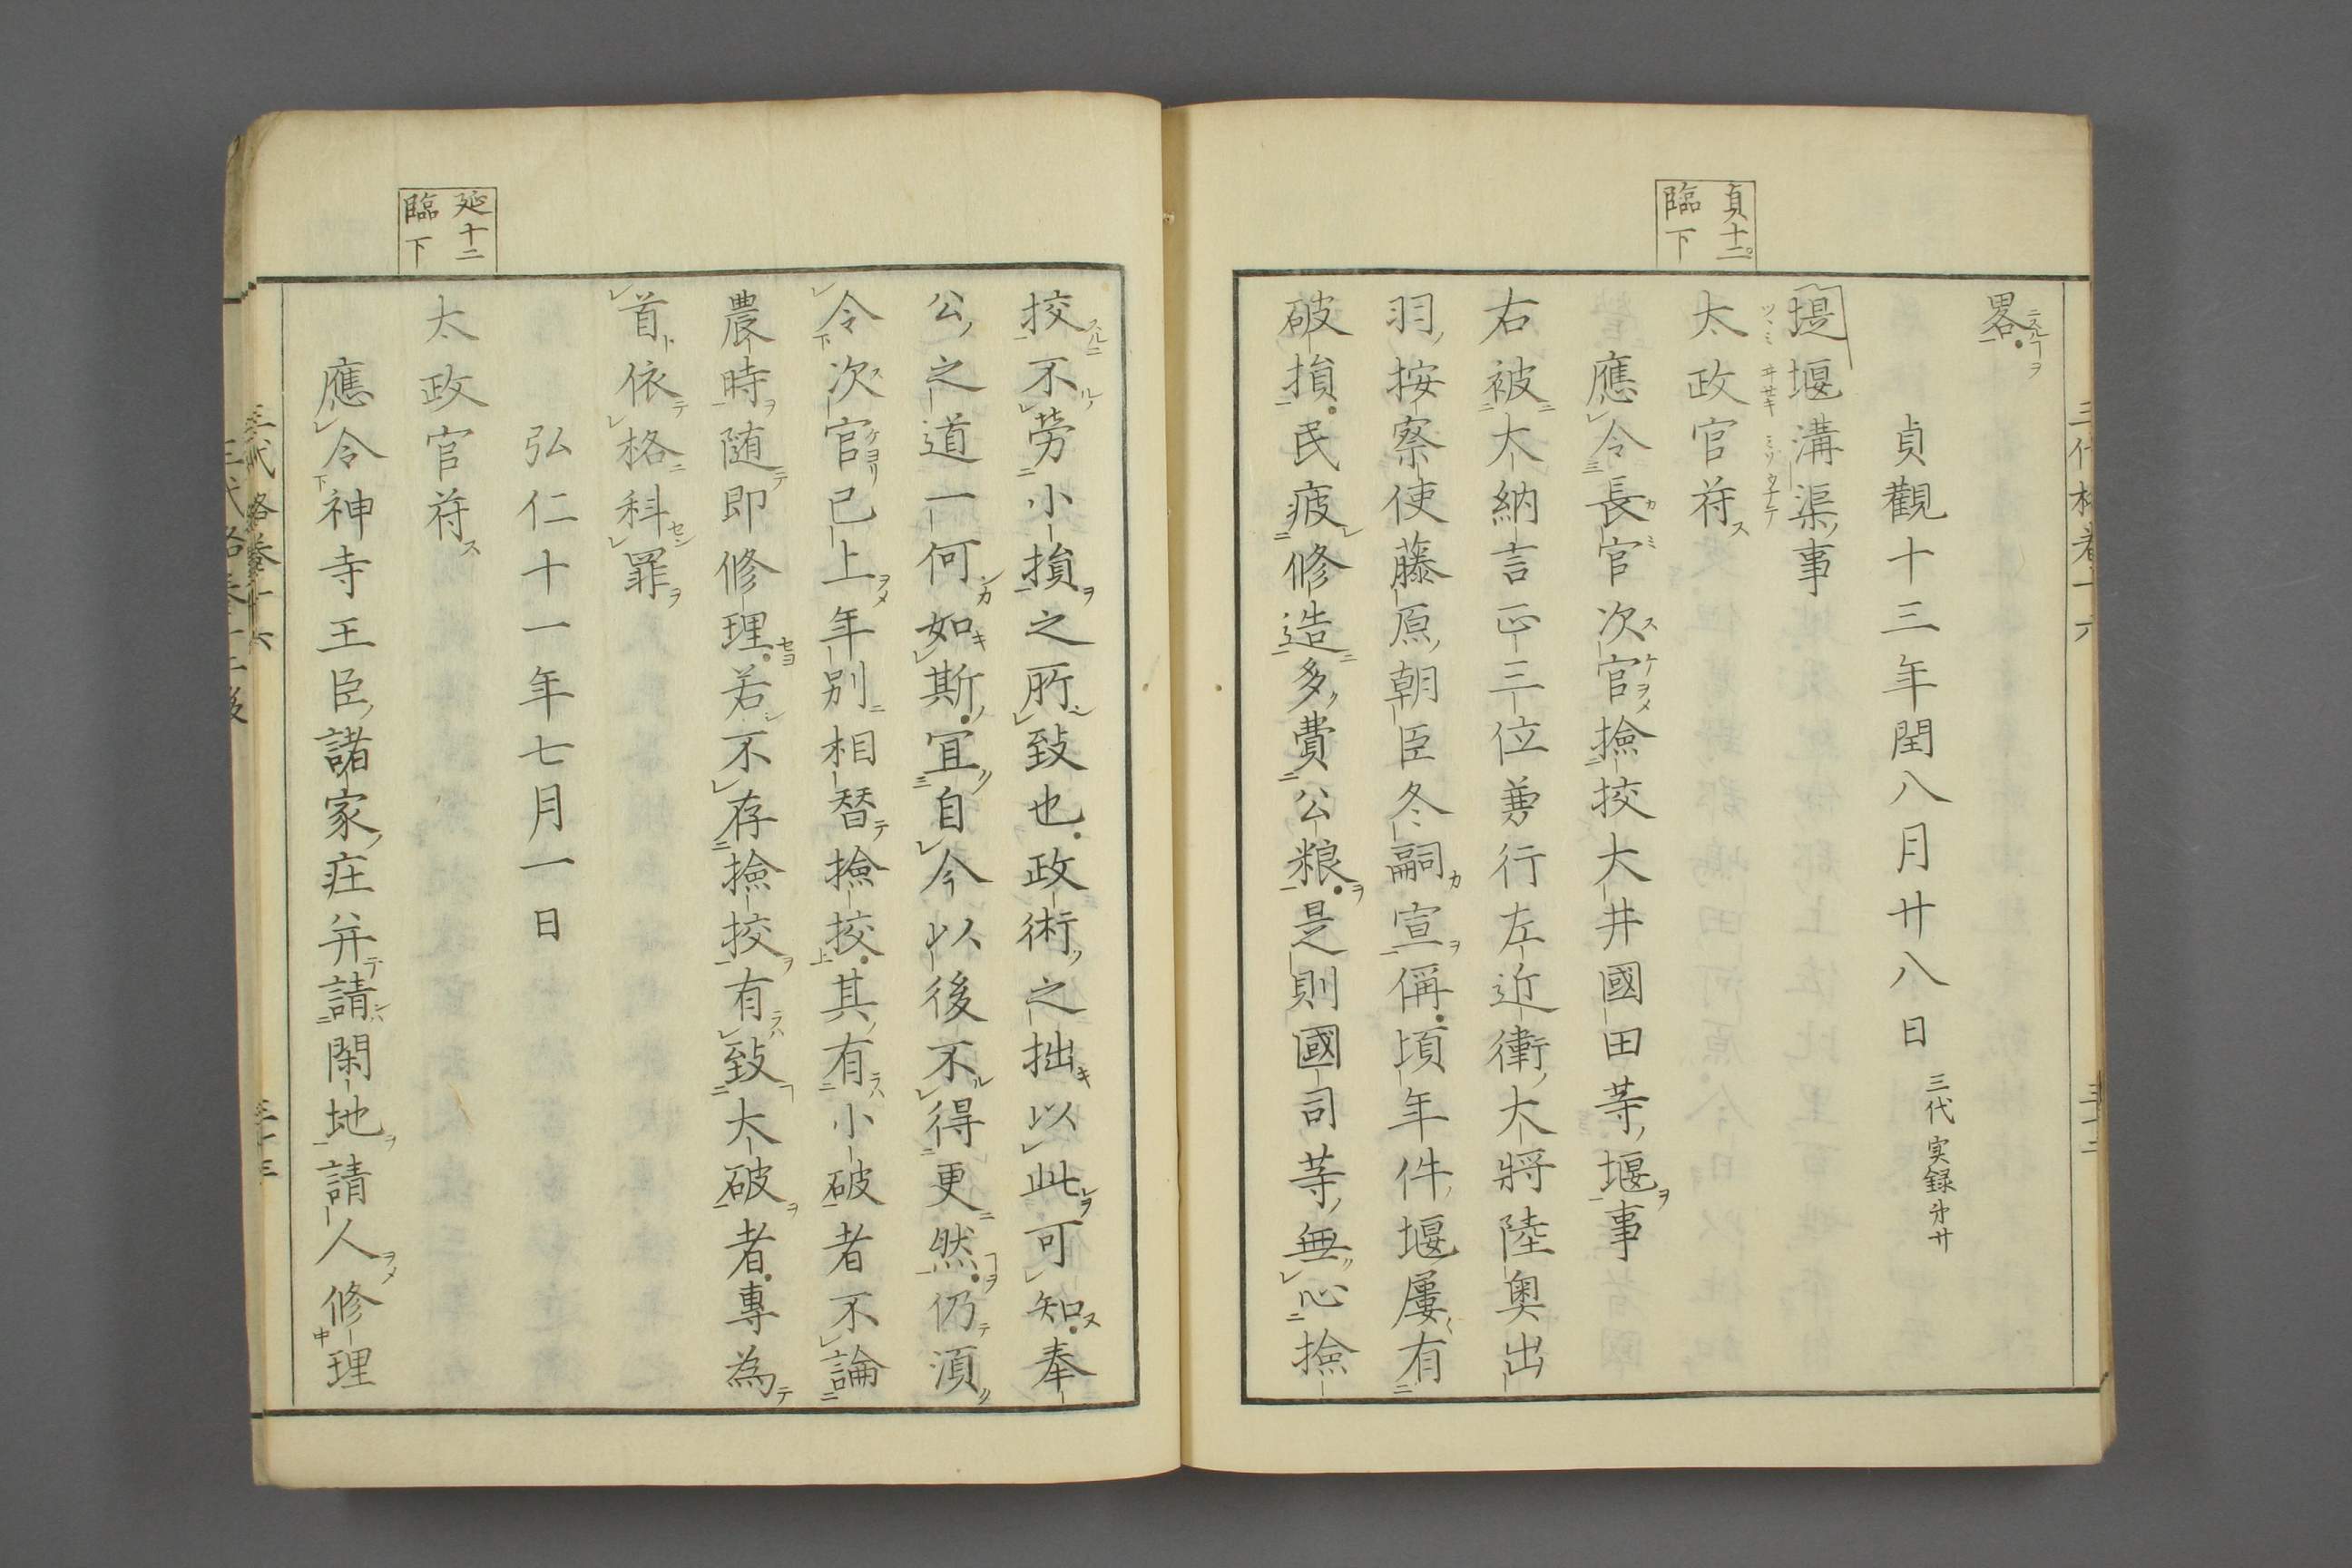 貞十二。
臨下
畧
貞觀十三年閏八月廿八日 三代実録㐧廿
堤堰溝渠事
太政官苻
應令長官次官撿挍大井國田䓁堰事
右被大納言正三位兼行左近衛大將陸奥出
羽按察使藤原朝臣冬嗣宣偁頃年件堰屢有
破損民疲修造多費公粮是則國司䓁無心撿
延十二
臨下
挍不勞小損之所致也政術之拙以此可知奉
公之道一何如斯冝自今以後不得更然仍湏
令次官已上年別相替撿挍其有小破者不論
農時随即修理若不存撿挍有致大破者專為
首依格科罪
弘仁十一年七月一日
太政官苻
應令神寺王臣諸家庄并請閑地請人修理